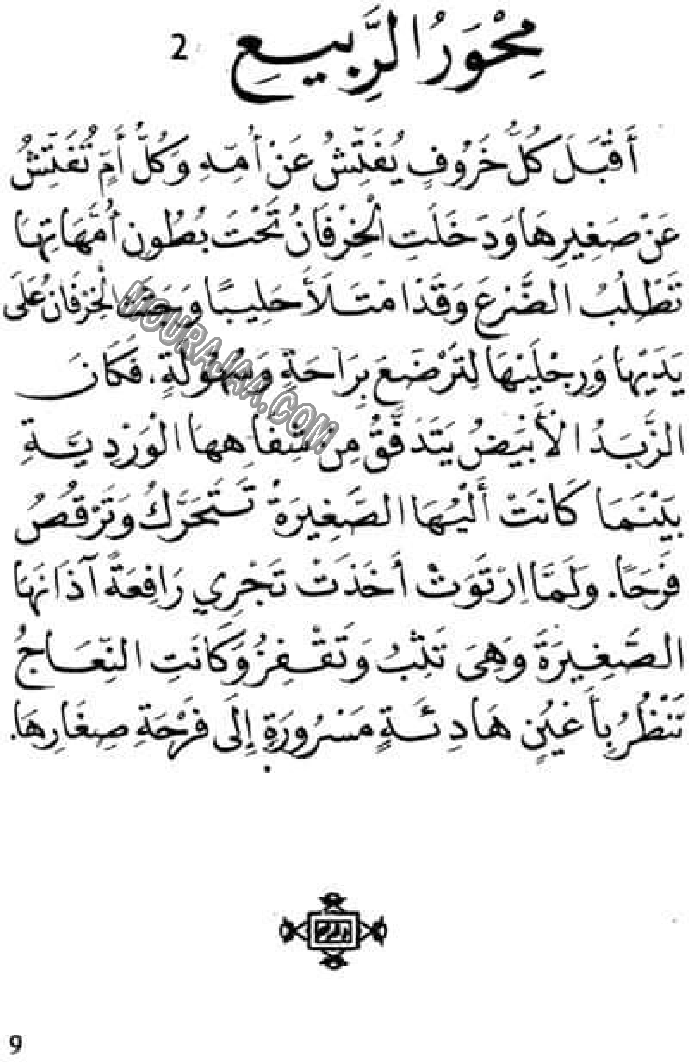 مِحْوَرُ الرَّبِيعِ 2
أَقْبَلَ كُلُّ خَرُوفٍ يُفَتِّشُ عَنْ أُمِّهِ وَكُلُّ أُمٍّ تُفَتِّشُ
عَنْ صَغِيرِهَا وَدَخَلَتِ الْخِرْفَانُ تَحْتَ بُطُونِ أُمَّهَاتِهَا
تَطْلُبُ الضَّرْعَ وَقَدْ امْتَلَأَ حَلِيبًا وَجَثَتِ الْخِرْفَانُ عَلَى
يَدَيْهَا وَرِجْلَيْهَا لِتَرْضَعَ بِرَاحَةٍ وَسُهُولَةٍ، فَكَانَ
الزَّبَدُ الْأَبْيَضُ يَتَدَفَّقُ مِنْ شِفَاهِهَا الْوَرْدِيَّةِ
بَيْنَمَا كَانَتْ أَلْيُهَا الصَّغِيرَةُ تَتَحَرَّكُ وَتَرْقُصُ
فَرَحًا. وَلَمَّا ارْتَوَتْ أَخَذَتْ تَجْرِي رَافِعَةً آذَانَهَا
الصَّغِيرَةَ وَهِيَ تَثِبُ وَتَقْفِزُ وَكَانَتِ النِّعَاجُ
تَنْظُرُ بِأَعْيُنٍ هَادِئَةٍ مَسْرُورَةٍ إِلَى فَرْحَةِ صِغَارِهَا.
MOURAJAA.COM
9